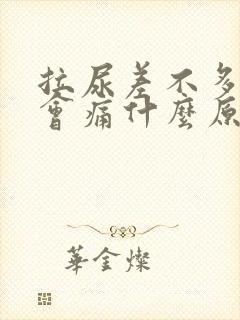 拉尿差不多
會痛什麼原
華金燦